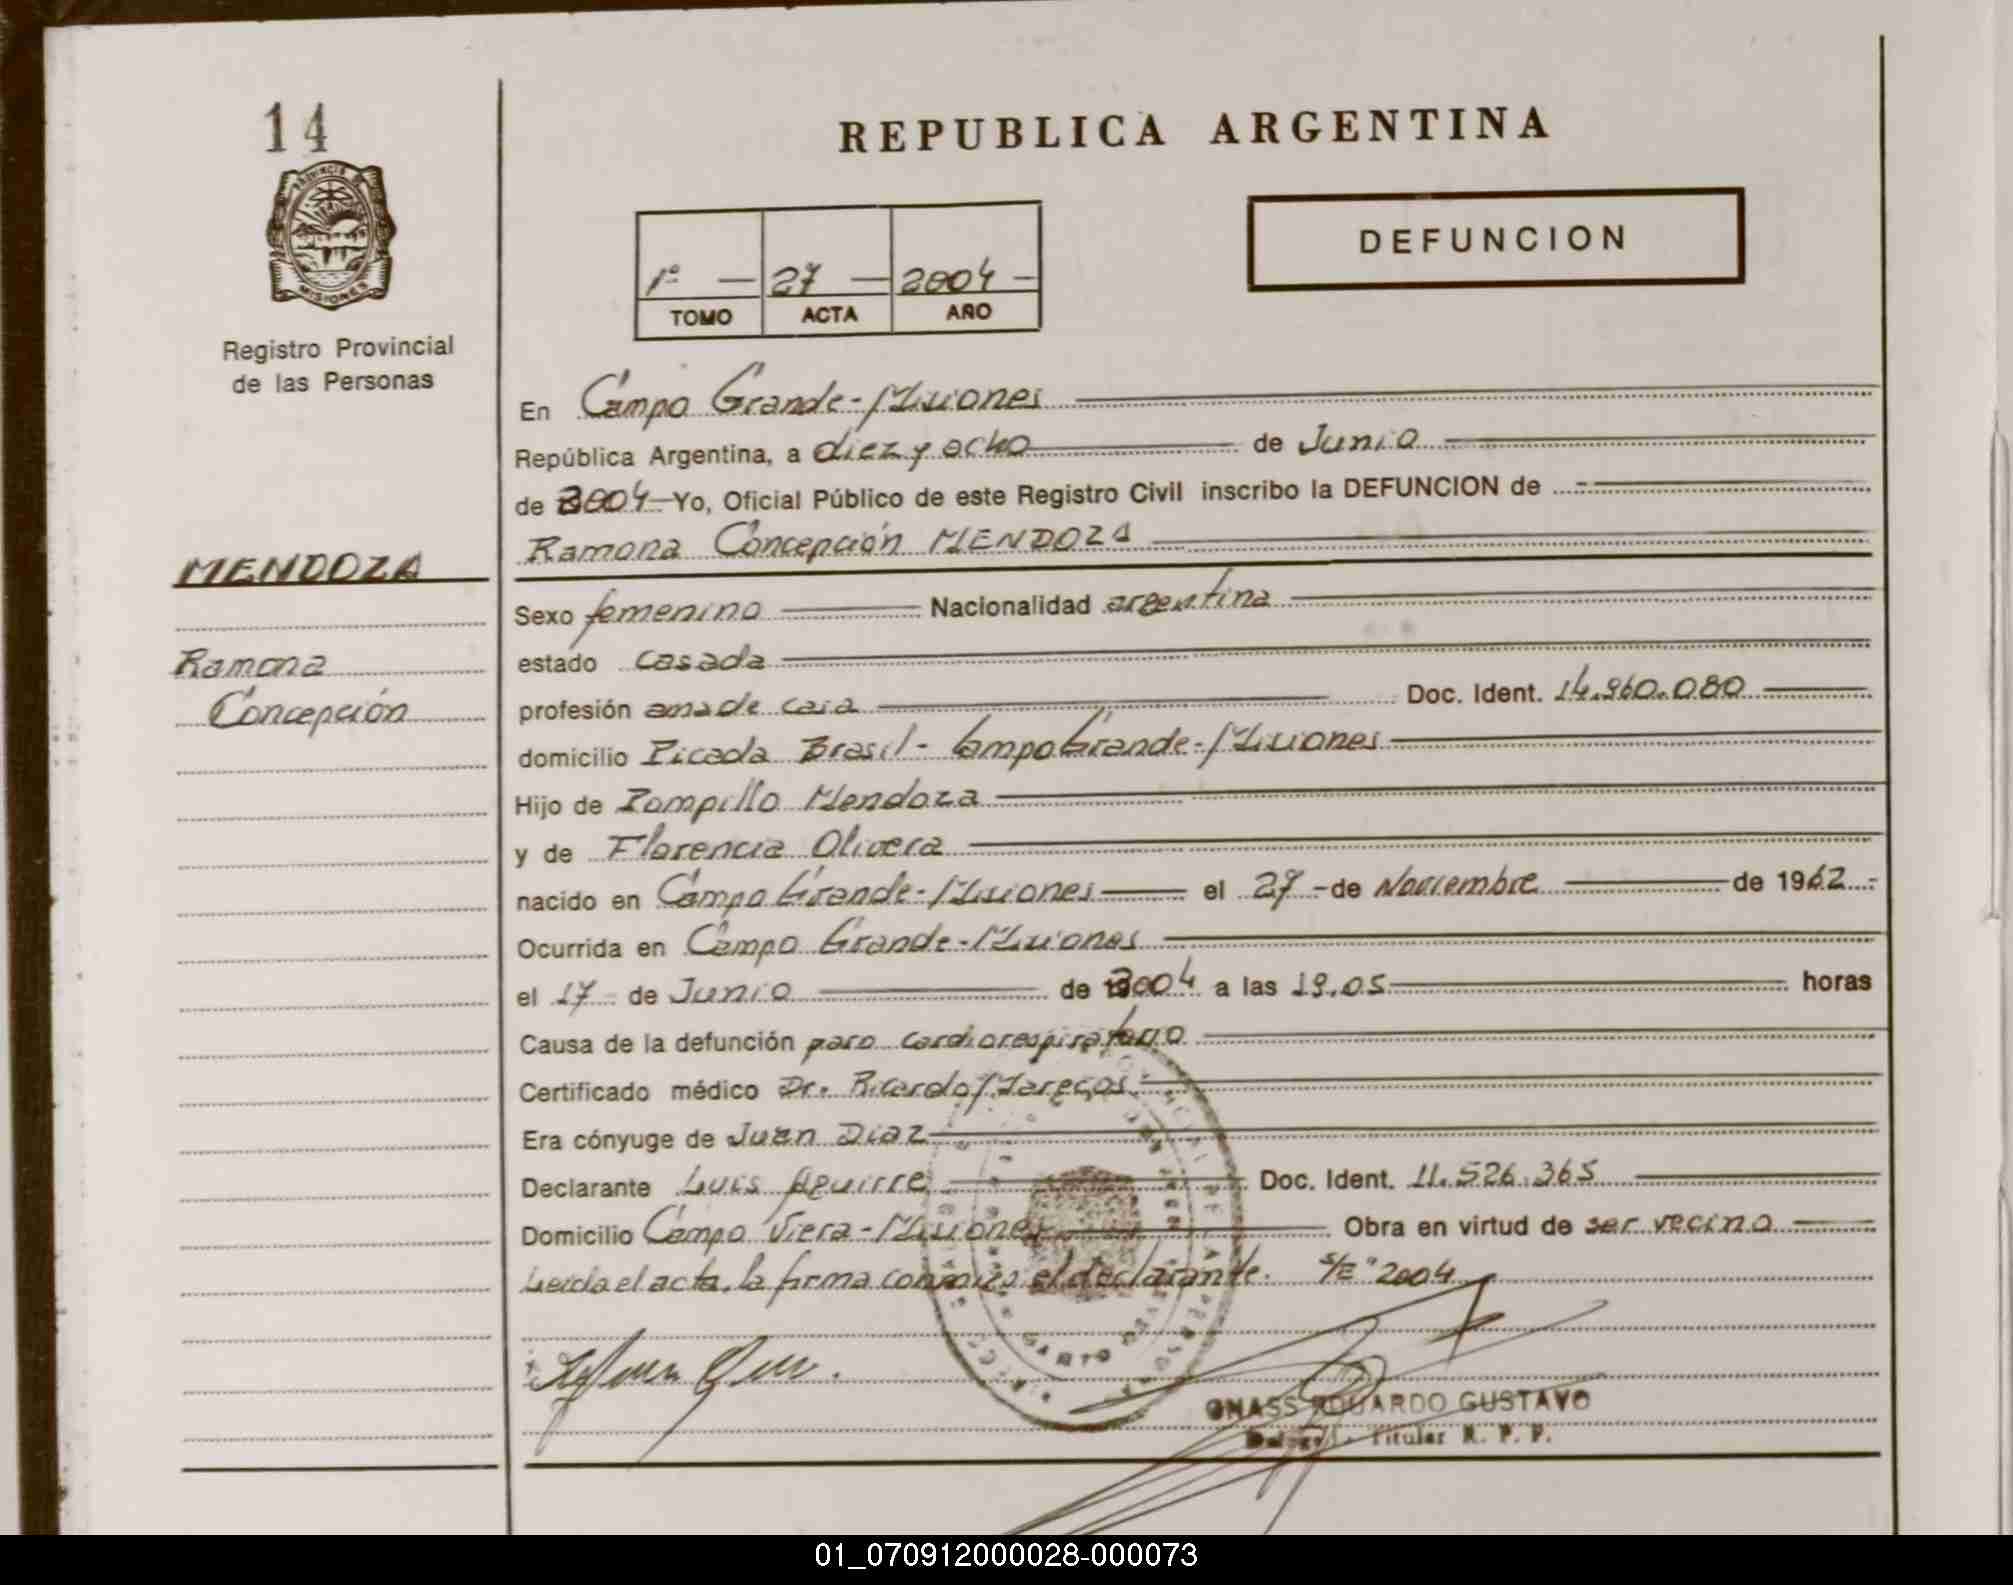 14
REPUBLICA ARGENTINA
PROVINCIA DE
MISIONES
Registro Provincial
de las Personas
1º — 27 — 2004 —
TOMO ACTA AÑO
DEFUNCION
En Campo Grande - Misiones
República Argentina, a diez y ocho de Junio
de 2004 Yo, Oficial Público de este Registro Civil inscribo la DEFUNCION de
Ramona Concepción MENDOZA
MENDOZA
Ramona
Concepción
Sexo femenino Nacionalidad argentina
estado casada
profesión ama de casa Doc. Ident. 14.960.080
domicilio Picada Brasil - Campo Grande - Misiones
Hijo de Pompillo Mendoza
y de Florencia Olivera
nacido en Campo Grande - Misiones el 27 - de Noviembre de 1962
Ocurrida en Campo Grande - Misiones
el 17 de Junio de 2004 a las 19.05 horas
Causa de la defunción paro cardiorespiratorio
Certificado médico Dr. Ricardo Mareços
Era cónyuge de Juan Diaz
Declarante Luis Aguirre Doc. Ident. 11.526.365
Domicilio Campo Viera - Misiones Obra en virtud de ser vecino
Leida el acta, la firma conmigo el declarante. S/E "2004
GNASS EDUARDO GUSTAVO
Titular R. P. P.
01_070912000028-000073